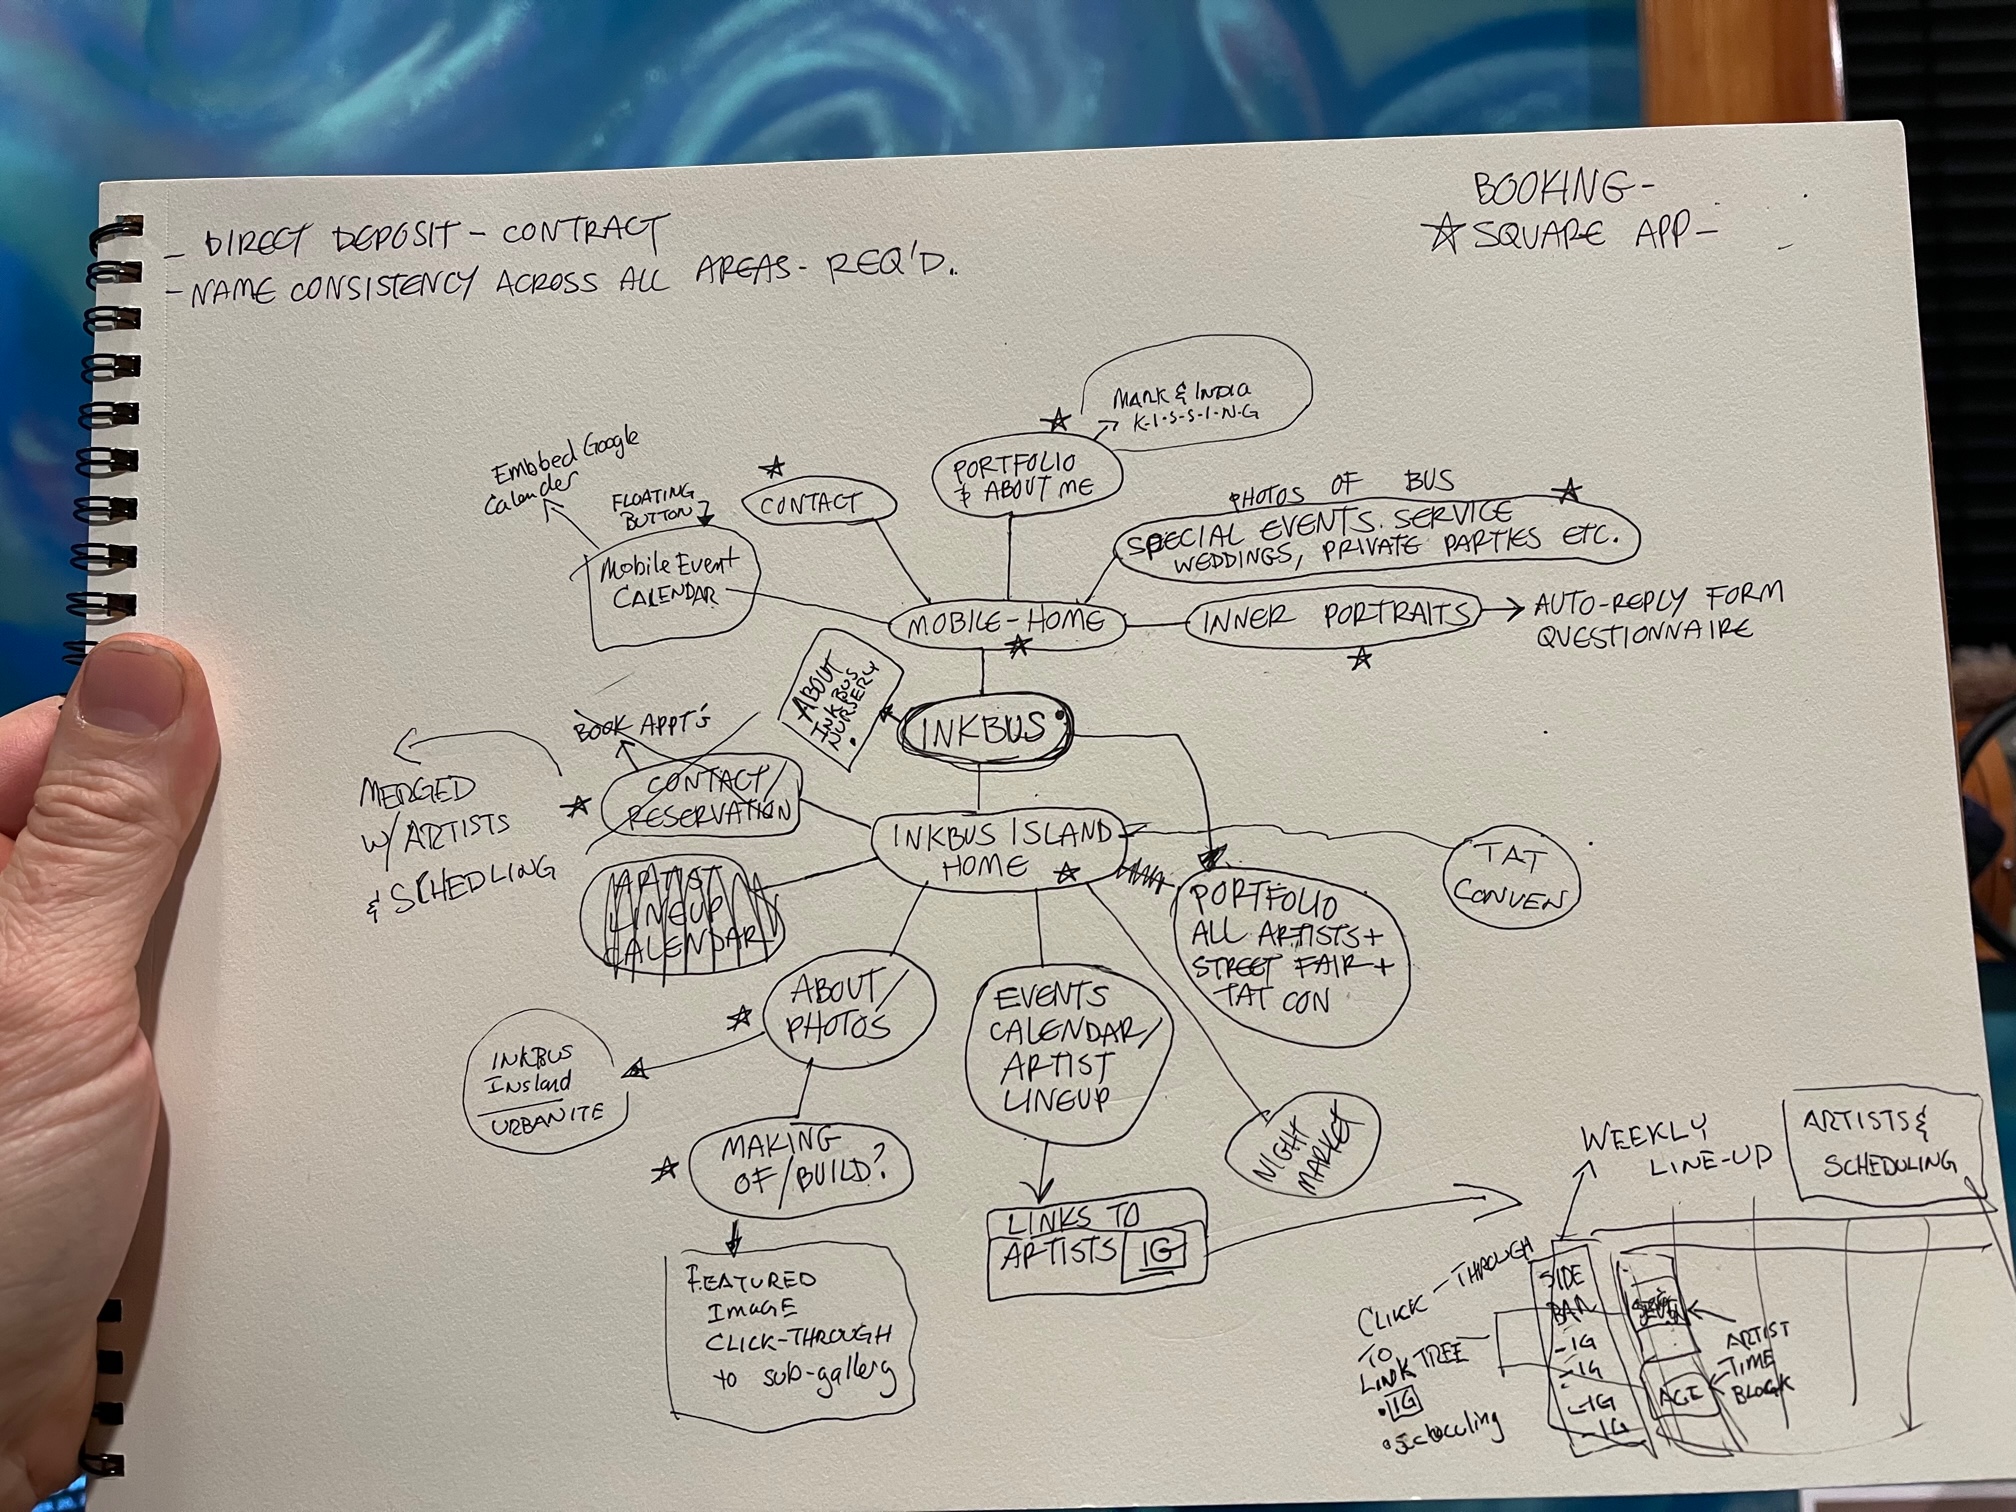 - DIRECT DEPOSIT - CONTRACT
- NAME CONSISTENCY ACROSS ALL AREAS - REQ'D.
BOOKING -
☆ SQUARE APP -
MARK & INDIA
K-I-S-S-I-N-G
PORTFOLIO
& ABOUT ME
Embbed Google
Calender
FLOATING
BUTTON
CONTACT
Mobile Event
CALENDAR
PHOTOS OF BUS
SPECIAL EVENTS. SERVICE
WEDDINGS, PRIVATE PARTIES ETC.
MOBILE-HOME
INNER PORTRAITS
AUTO-REPLY FORM
QUESTIONNAIRE
ABOUT
INKBUS
NURSERY
INKBUS
BOOK APPT's
CONTACT/
RESERVATION
MERGED
W/ ARTISTS
& SCHEDLING
INKBUS ISLAND
HOME
TAT
CONVEN
ARTIST
LINEUP
CALENDAR
PORTFOLIO
ALL ARTISTS +
STREET FAIR +
TAT CON
ABOUT/
PHOTOS
EVENTS
CALENDAR/
ARTIST
LINEUP
INKBUS
Insland
URBANITE
MAKING
OF/BUILD?
NIGHT
MARKET
LINKS TO
ARTISTS IG
FEATURED
IMAGE
CLICK-THROUGH
to sub-gallery
WEEKLY
LINE-UP
ARTISTS &
SCHEDULING
CLICK-THROUGH
TO
LINK TREE
• IG
• Scheduling
SIDE
BAR
- IG
- IG
- IG
- IG
ACE
ARTIST
TIME
BLOCK